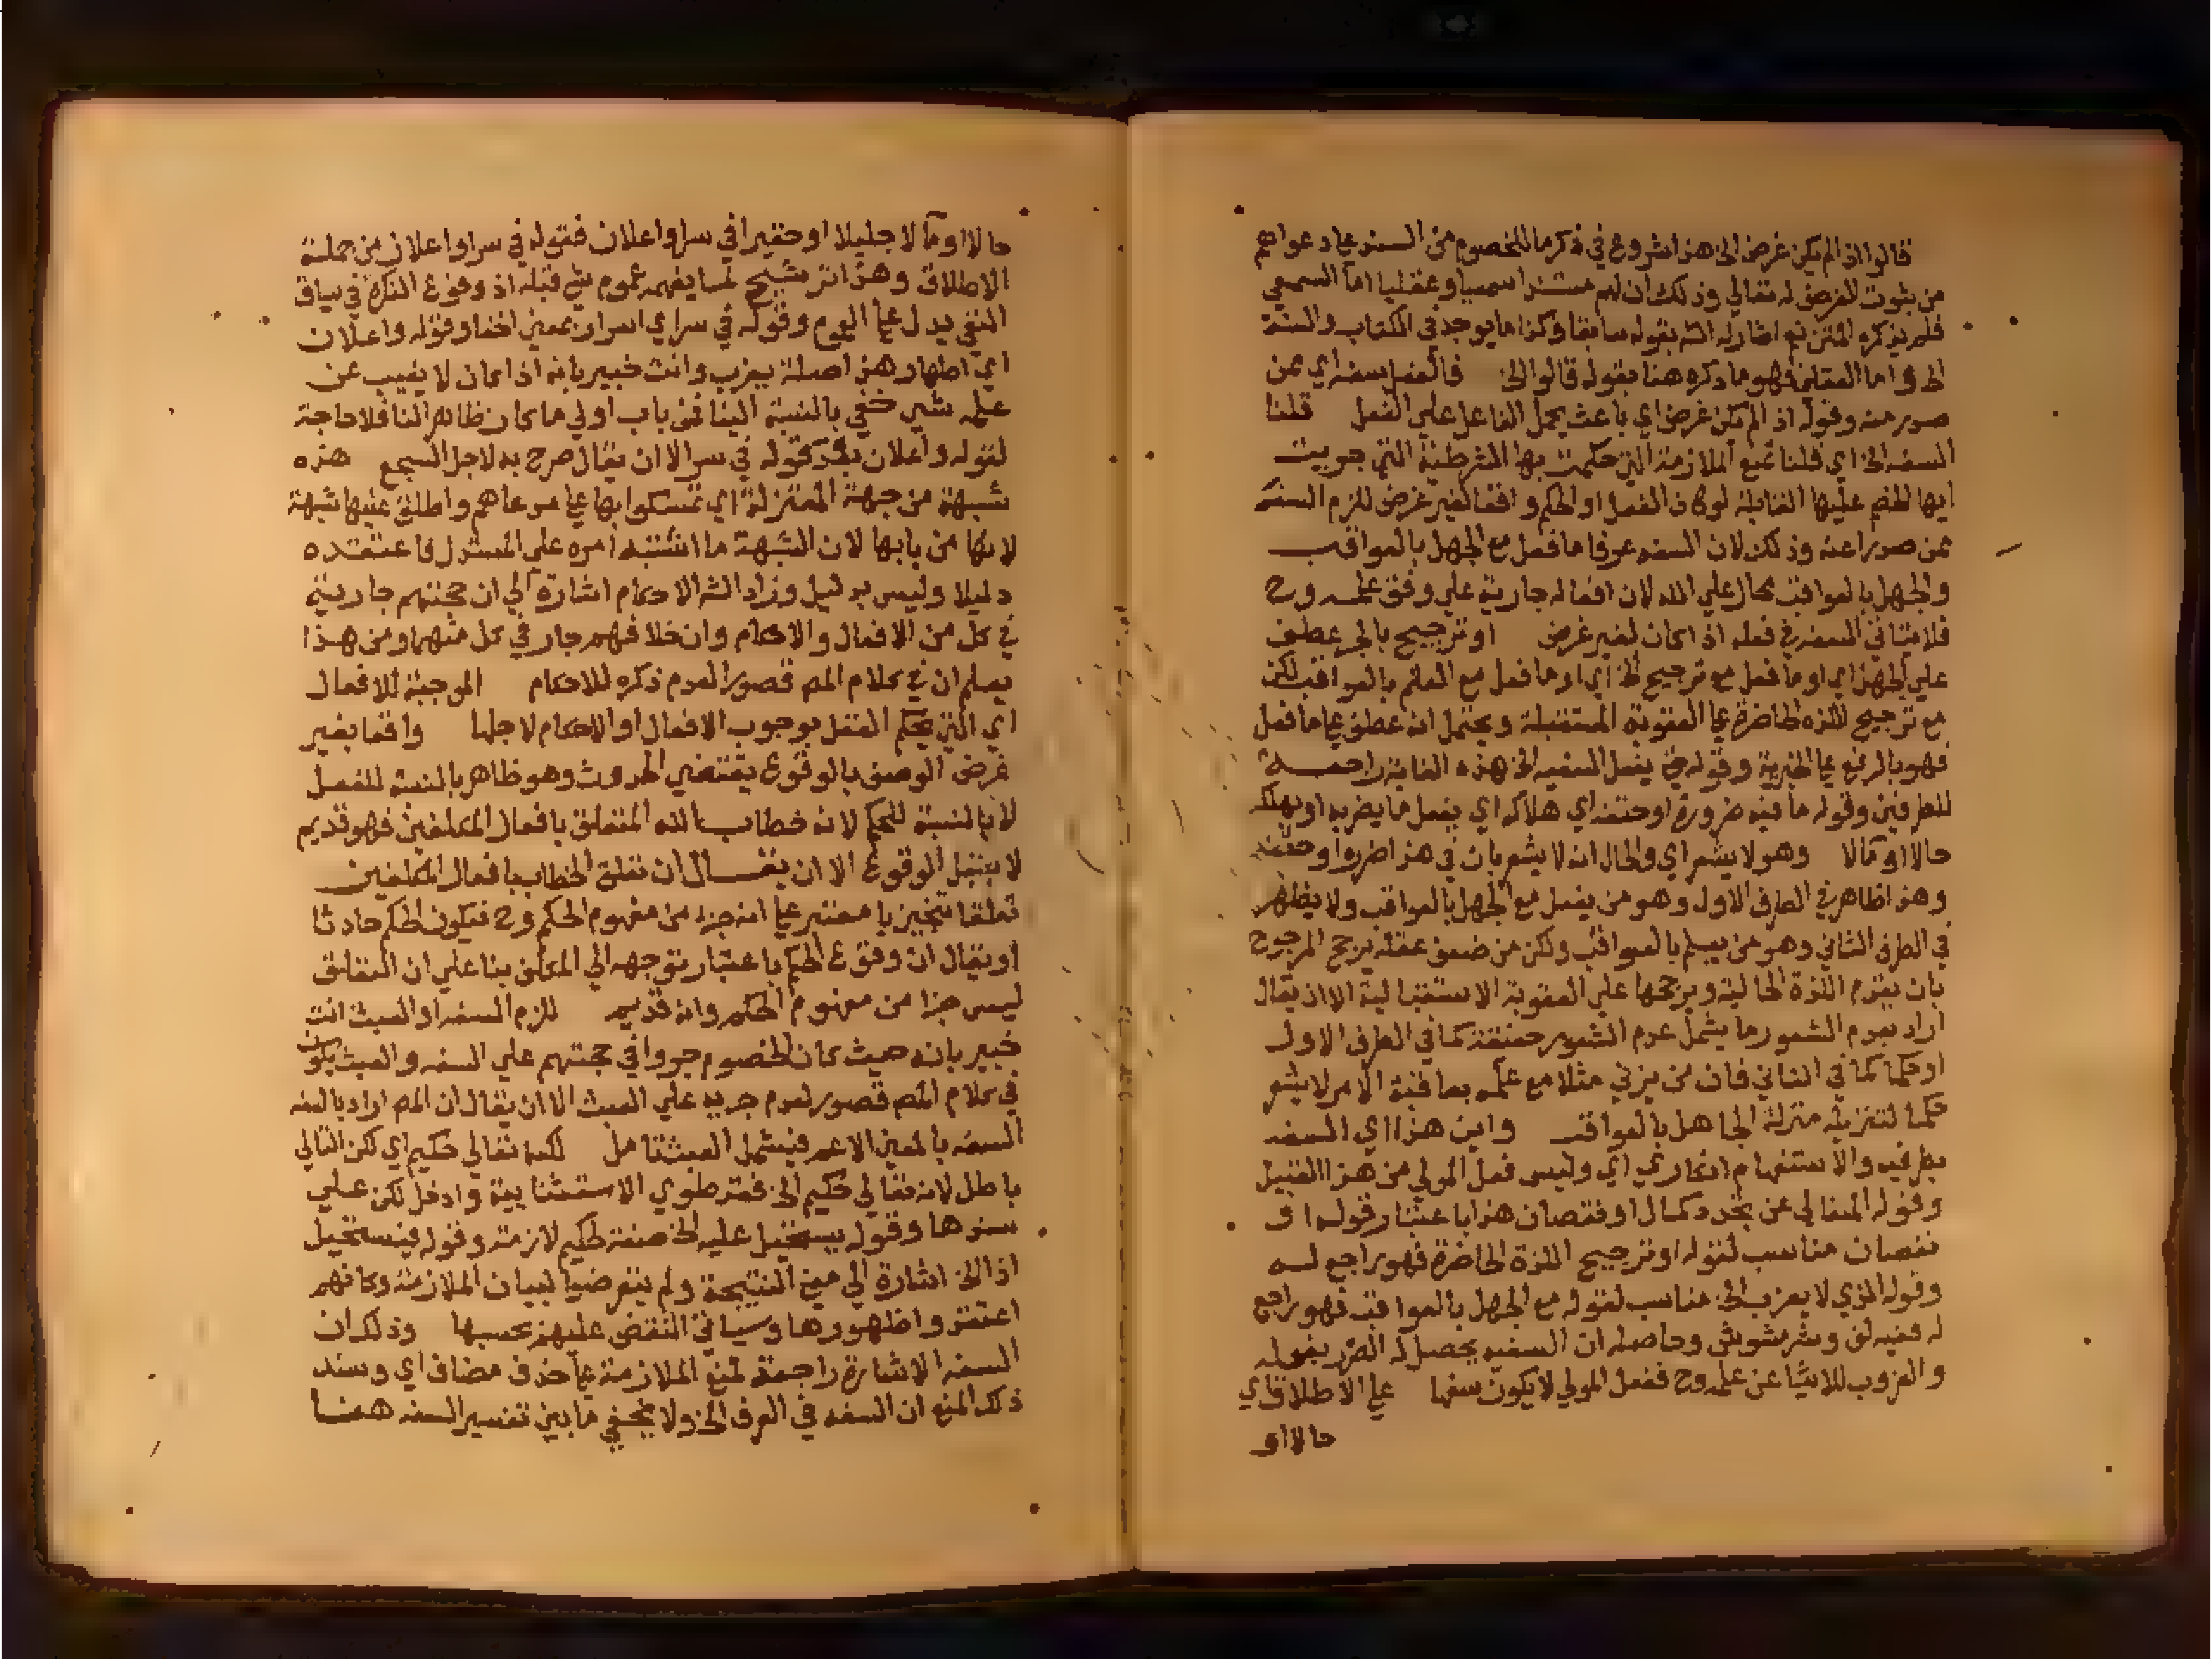 قالوا اذا لم يكن غرض الخ هذا شروع في ذكر ما للخصوم من السند علي دعواهم
من ثبوت الغرض له تعالي وذلك ان لهم مستندا سمعيا وعقليا اما السمعي
فلم يذكره المتن نعم اشار له الش بقوله سابقا وكذا ما يوجد في الكتاب والسنة
الخ واما العقلي فهو ما ذكره هنا بقوله قالوا الخ فالفعل سفه اي ممن
صدر منه وقوله اذا لم يكن غرض اي باعث يحمل الفاعل علي الفعل قلنا
السفه الخ اي قلنا نمنع الملازمة التي حكمت بها الشرطية التي جريت
ايها الخصم عليها القايلة لو كان الفعل او الحكم واقعا لغير غرض للزم السفه
ممن صدرا عنه وذلك لان السفه عرفا ما فعل مع الجهل بالعواقب
والجهل بالعواقب محال علي الله لان افعاله جارية علي وفق علمه وح
فلا يتاتي السفه في فعله اذا كان لغير غرض او ترجيح بالجر عطف
علي الجهل اي او ما فعل مع ترجيح الخ اي او ما فعل مع العلم بالعواقب لكن
مع ترجيح اللذه الحاضرة علي العقوبة المستقبلة ويحتمل انه عطف علي ما فعل
فهو بالرفع علي الخبرية وقوله حتي يفعل السفيه الخ هذه الغاية راجعة
للطرفين وقوله ما فيه ضرورة او حتفه اي هلاكه اي يفعل ما يضر به او يهلكه
حالا او مآلا وهو لا يشعر اي والحال انه لا يشعر بان في هذا ضررا او حتفه
وهذا ظاهر في الطرف الاول وهو من يفعل مع الجهل بالعواقب ولا يظهر
في الطرف الثاني وهو من يعلم بالعواقب ولكن من ضعف عقله يرجح المرجوح
بان يقدم اللذة الحالية ويرجحها علي العقوبة الاستقبالية الا ان يقال
اراد بعدم الشعور ما يشمل عدم الشعور حقيقة كما في الطرف الاول
او حكما كما في الثاني فان من يزني مثلا مع علمه بعاقبة الامر لا يشعر
حكما لتنزيله منزلة الجاهل بالعواقب واين هذا اي السفه
بطرفيه والاستفهام انكاري اي وليس فعل المولي من هذا القبيل
وقوله المتعالي عن تجدد كمال او نقصان هذا باعتبار قوله او
نقصان مناسب لقوله او ترجيح اللذة الحاضرة فهو راجع له
وقوله الذي لا يعزب الخ مناسب لقوله مع الجهل بالعواقب فهو راجع
له ففيه لف ونشر مشوش وحاصله ان السفيه يحصل له الضرر بفعله
والعزوب للاشيا عن علمه وح ففعل المولي لا يكون سفها علي الاطلاق اي
حالا او
حالا او مآلا جليلا او حقيرا في سر او اعلان فقوله في سر او اعلان من جملة
الاطلاق وهذا ترشيح لما يفهمه عموم شي قبله اذ وقوع النكرة في سياق
النفي يدل علي العموم وقوله في سر اي اسرار بمعني اخفا وقوله واعلان
اي اظهار هذا صلة يعزب وانت خبير بانه اذا كان لا يغيب عن
علمه شي خفي بالنسبة الينا فمن باب اولي ما كان ظاهر النا فلا حاجة
لقوله واعلان بعد قوله في سر الا ان يقال صرح به لاجل السجع هذه
شبهة من جهة المعتزلة اي تمسكوا بها علي مدعاهم واطلق عليها شبهة
لانها من بابها لان الشبهة ما اشتبه امره علي المستدل فاعتقده
دليلا وليس بدليل وزاد الش الاحكام اشارة الي ان حجتهم جارية
في كل من الافعال والاحكام وان خلافهم جار في كل منهما ومن هذا
يعلم ان في كلام المص قصور العدم ذكره للاحكام الموجبة للافعال
اي التي يحكم العقل بوجوب الافعال او الاحكام لاجلها واقعا بغير
غرض الوصف بالوقوع يقتضي الحدوث وهو ظاهر بالنسبة للفعل
لا بالنسبة للحكم لانه خطاب الله المتعلق بافعال المكلفين فهو قديم
لا يقبل الوقوع الا ان يقال ان تعلق الخطاب بافعال المكلفين
تعلقا تنجيزيا معتبر علي انه جزء من مفهوم الحكم وح فيكون الحكم حادثا
او يقال ان وقوع الحكم باعتبار توجهه الي المكلف بنا علي ان التعلق
ليس جزا من مفهوم الحكم وانه قديم للزم السفه او العبث انت
خبير بانه حيث كان الخصوم جروا في حجتهم علي السفه والعبث يكون
في كلام المص قصور لعدم جريه علي العبث الا ان يقال ان المص اراد بالسفه
السفه بالمعني الاعم فيشمل العبث تامل لكنه تعالي حكيم اي لكن التالي
باطل لانه تعالي حكيم الخ فقد طوي الاستثنايية وادخل لكن علي
سندها وقوله يستحيل عليه الخ صفة لحكيم لازمة وقوله فيستحيل
اذا الخ اشارة الي معني النتيجة ولم يتعرضوا لبيان الملازمة وكانهم
اعتقدوا ظهورها وسياتي النقض عليهم بحسبها وذلك ان
السفه الاشارة راجعة لمنع الملازمة علي حذف مضاف اي وسند
ذلك المنع ان السفه في العرف الخ ولا يخفي ما بين تفسير السفه هنا